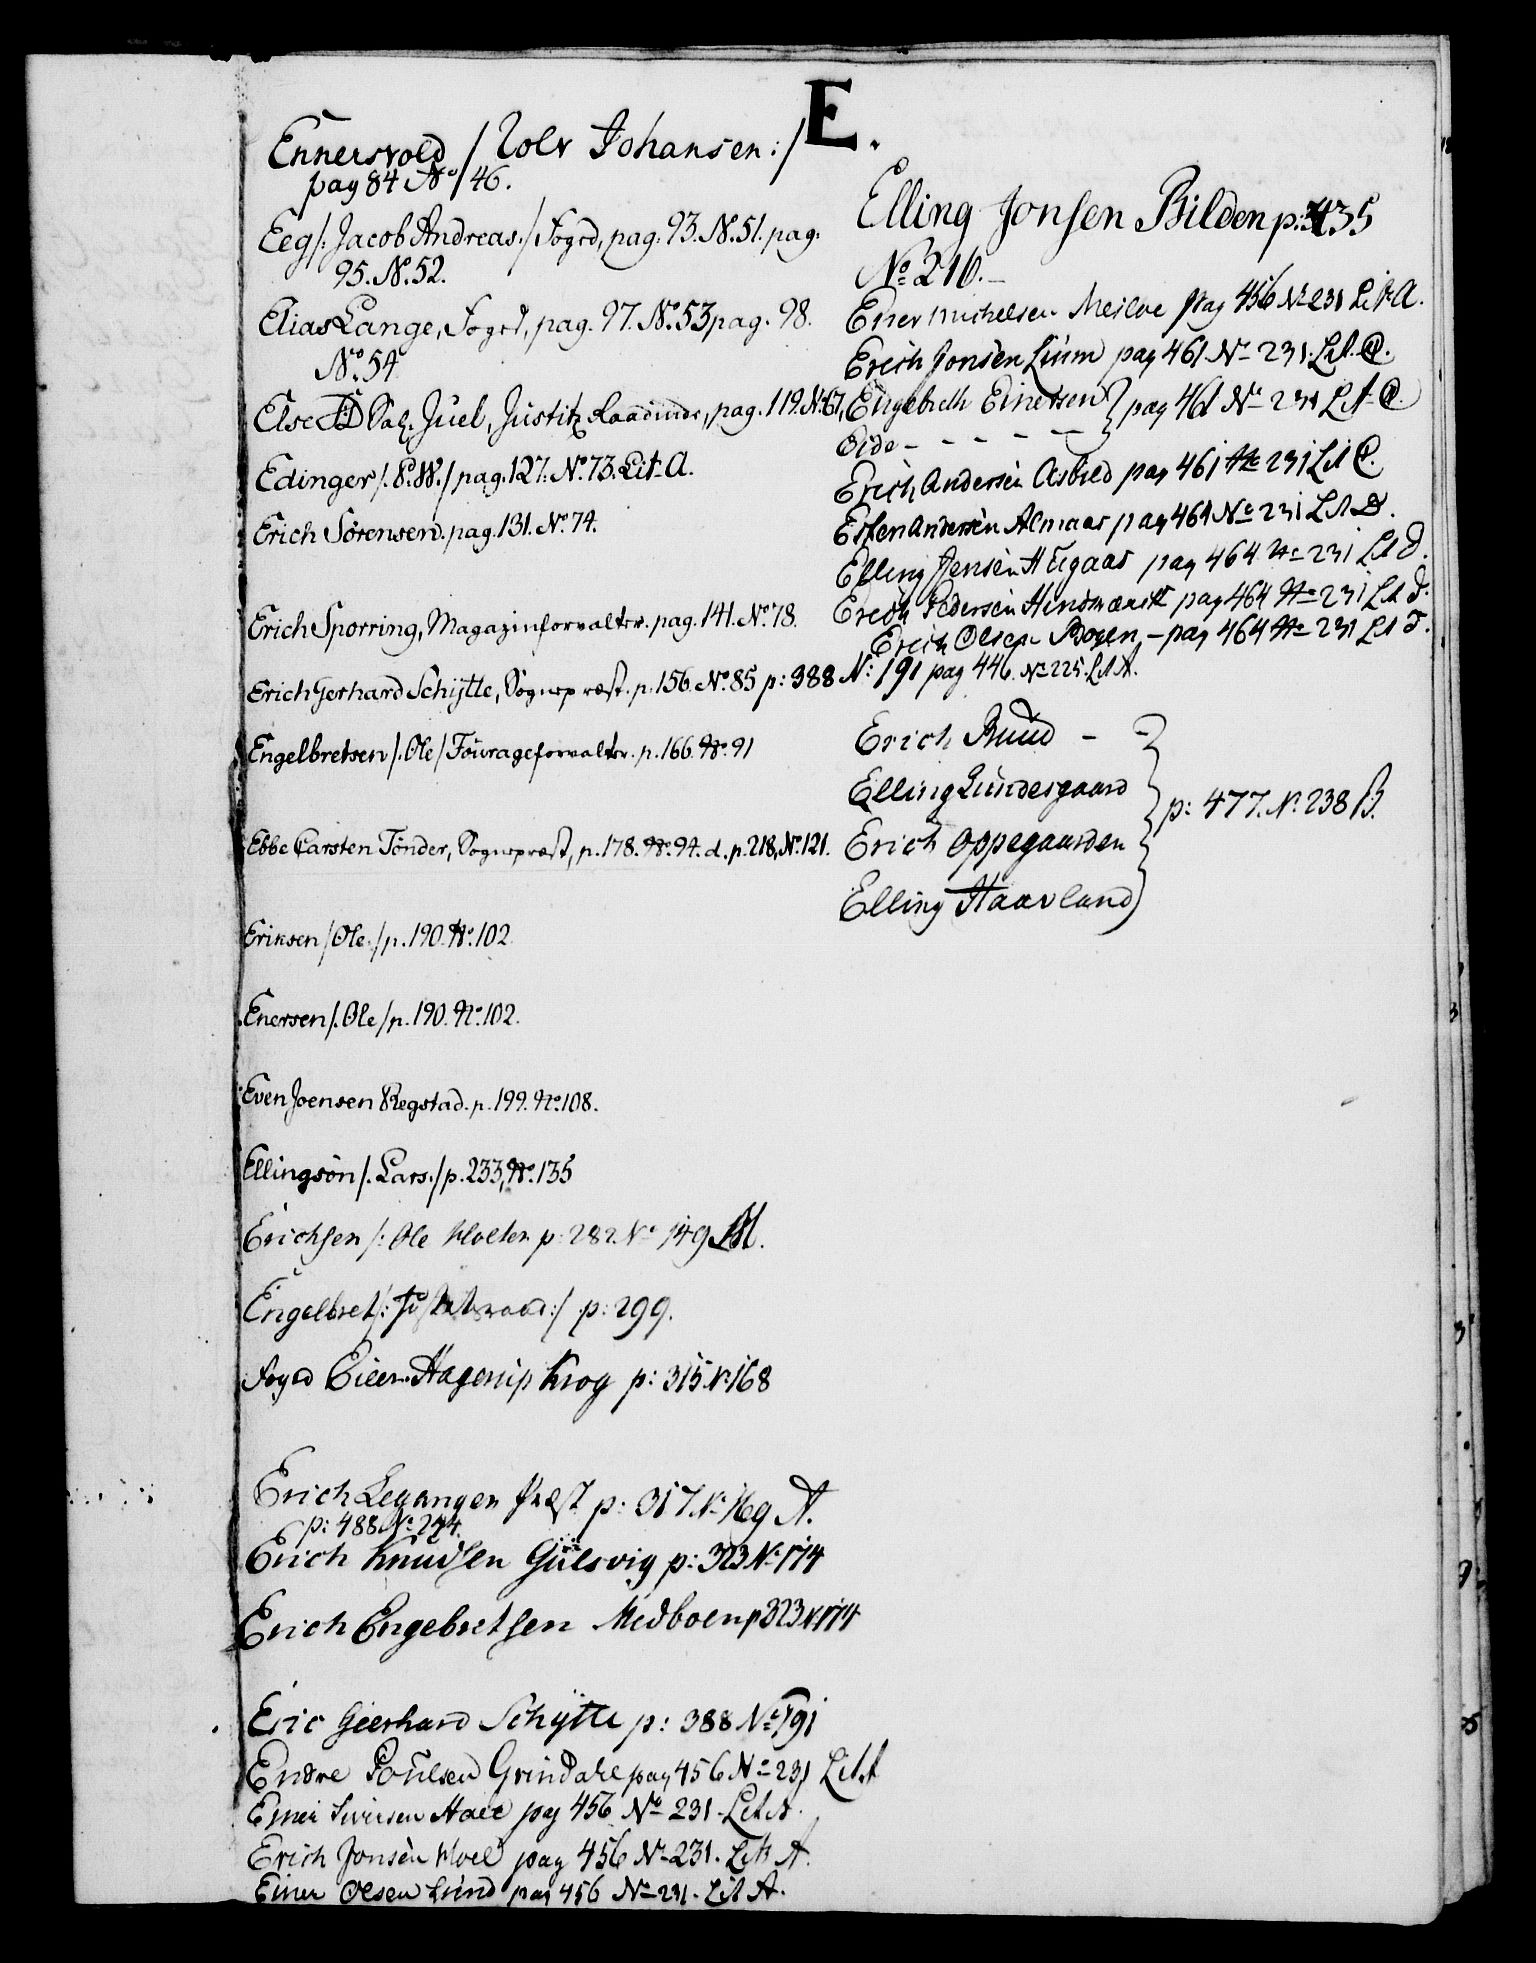 E.
Ennersvold /Tolv Johansen:/
pag 84 No 46.
Eeg/: Jacob Andreas./ Foged, pag. 93. N. 51. pag.
95. No. 52.
Elias Lange, Foged, pag. 97. No. 53 pag. 98.
No. 54
Else Sal. Juel, Justitz Raadinde, pag. 119. N. 67,
Edinger /. P.W./ pag. 127. No. 73. Lit. A.
Erich Sørensen. pag. 131. No. 74.
Erich Sporring, Magazinforvalter. pag. 141. No. 78.
Erich Gerhard Schÿtte, Sognepræst. p. 156. No. 85 p: 388 N: 191 pag 446. No 225. Lit A.
Engelbretsen /. Ole / Fourageforvalter. p. 166. No. 91
Ebbe Carsten Tønder, Sognepræst, p. 178. No. 94. d. p. 218, No. 121.
Eriksen /Ole./ p. 190. No. 102
Enersen /. Ole / p. 190. No. 102.
Even Joensen Regstad. p. 199. No. 108.
Ellingsøn /. Lars./ p. 233, No. 135
Erichsen /: Ole Holter p: 282. No 149
Engelbret /: Justitsraad :/ p: 299.
Foged Eiler Hagerup Krog p: 315 No 168
Erich Leganger Præst p: 317. No 169 A.
p: 488 No 244.
Erich Knudsen Gulsvig p: 323 No 174
Erich Engebretsen Medboen p 323 N 174
Eric Geerhard Schÿtte p: 388 No 191
Endre Poulsen Grindahl pag 456 No 231 Lit A
Einer Siversen Hall pag 456 No 231. Lit A.
Erich Jonsen Moel pag 456 No 231. Litr A.
Einer Olsen Lund pag 456 No 231. Lit A.
Elling Jonsen Bilden p: 435
No 216.
Ener Michelsen pag 456 No 231 Litr A.
Erich Jonsen Lium pag 461 No 231. Lit. C.
Engebreth Einersen } pag 461 No 231 Lit C.
Eide - - - - - -
Erich Andersen Aasbed pag 461 No 231 Lit C.
Esten Andersen Almaas pag 461 No 231 Lit D.
Elling Jensen Haugaas pag 464 No 231 Lit
Erich Pedersen pag 464 No 231 Lit
Erich Olsen Bogen - pag 464 No 231 Lit F.
Erich Ruud -
Elling Lundesgaard
p: 477. No. 238 B.
Erich Oppegaarden
Elling Haavland